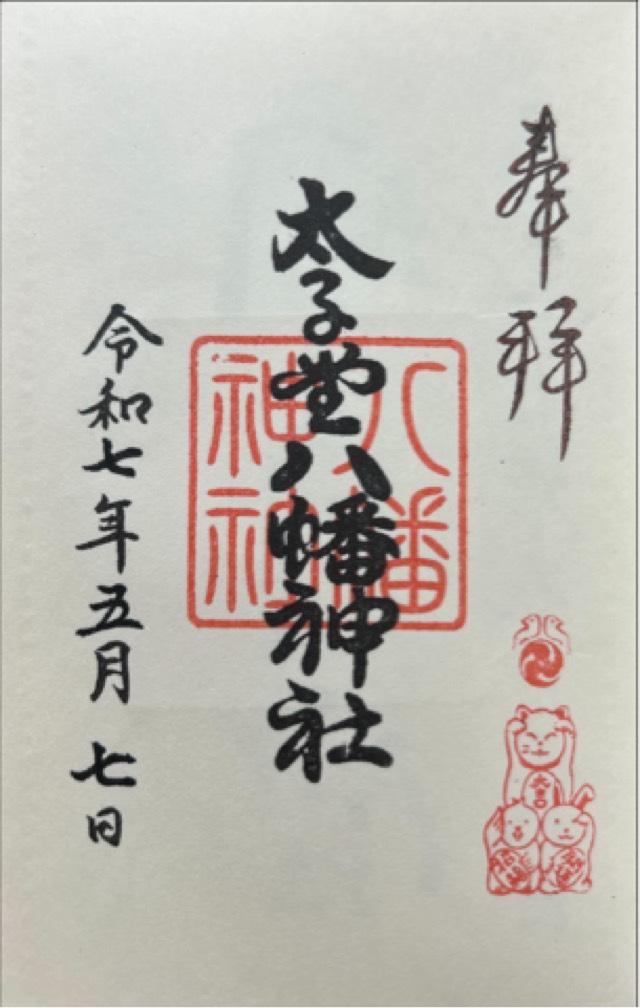 奉拝
八幡
神社
太子堂八幡神社
令和七年五月七日